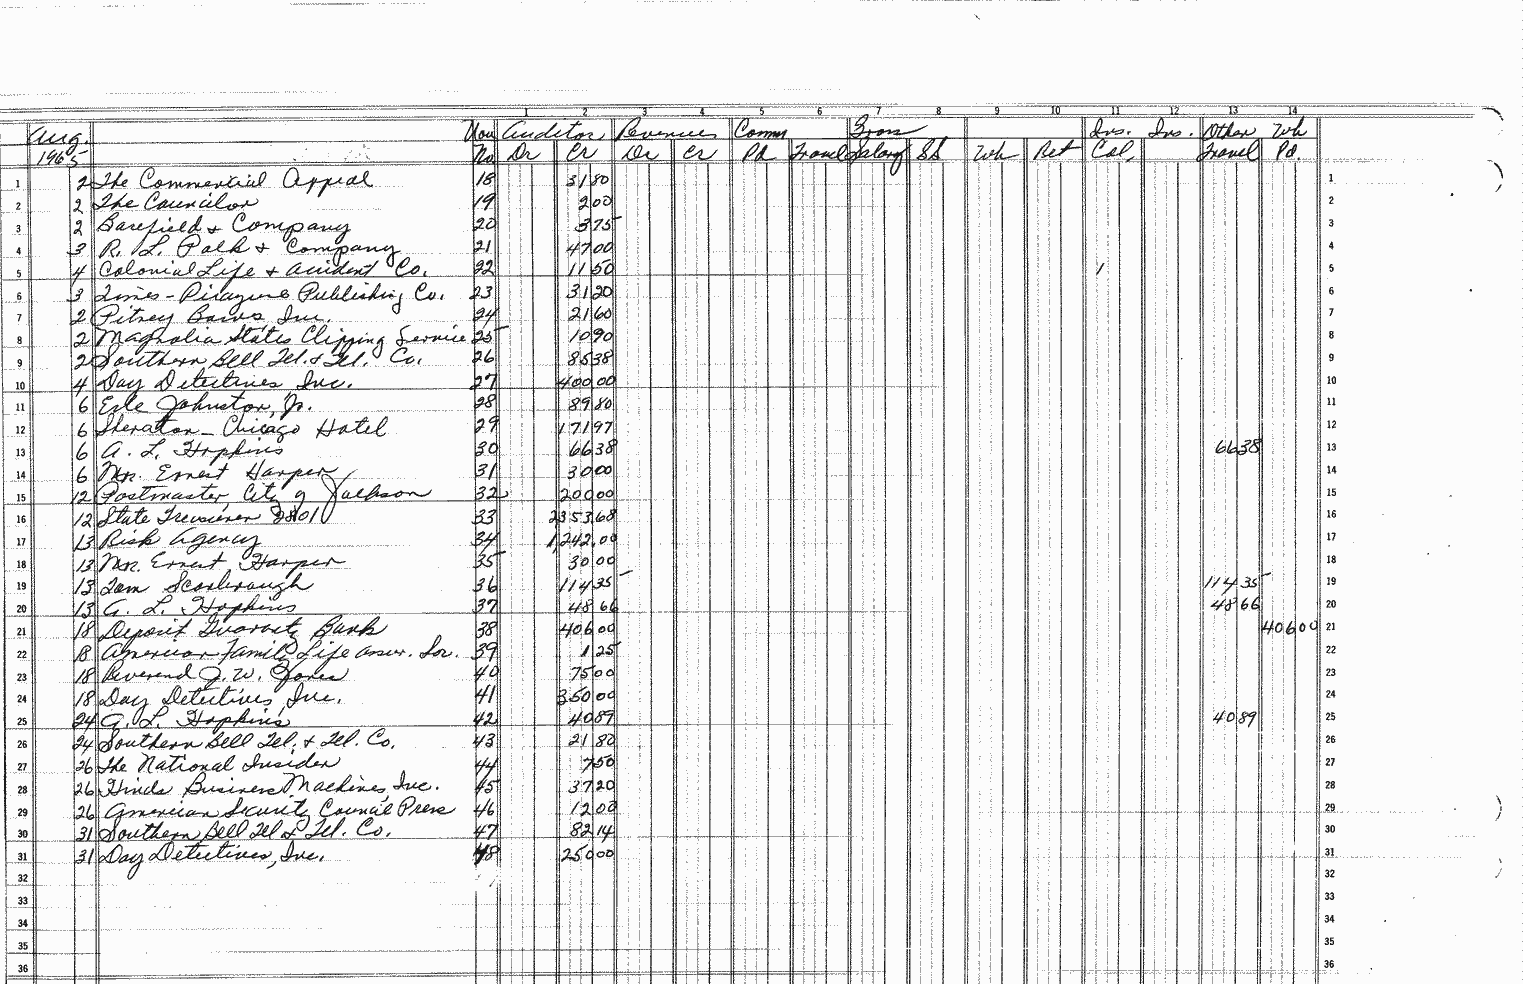 1 2 3 4 5 6 7 8 9 10 11 12 13 14
Aug. Vou Auditor Revenues Comm Gross Ins. Ins. Other Wh
1965 No. Dr Cr Dr Cr Pd Travel Salary SS Wh Ret Col. Travel Pd.
1 2 The Commercial Appeal 18 31 80 1
2 2 The Councilor 19 2 00 2
3 2 Barefield & Company 20 3 75 3
4 3 R. L. Polk & Company 21 47 00 4
5 4 Colonial Life & Accident Co. 22 11 50 / 5
6 3 Times-Picayune Publishing Co. 23 31 20 6
7 2 Pitney Bowes, Inc. 24 21 60 7
8 2 Magnolia States Clipping Service 25 10 90 8
9 2 Southern Bell Tel. & Tel. Co. 26 85 38 9
10 4 Day Detectives Inc. 27 400 00 10
11 6 Erle Johnston, Jr. 28 89 80 11
12 6 Sheraton-Chicago Hotel 29 171 97 12
13 6 A. L. Hopkins 30 66 38 66 38 13
14 6 Mrs. Ernest Harper 31 30 00 14
15 12 Postmaster, City of Jackson 32 200 00 15
16 12 State Treasurer 2801 33 2353.68 16
17 13 Risk Agency 34 1,242.00 17
18 13 Mrs. Ernest Harper 35 30 00 18
19 13 Tom Scarbrough 36 114 35 114 35 19
20 13 A. L. Hopkins 37 48 66 48 66 20
21 18 Deposit Guaranty Bank 38 406 00 406 00 21
22 18 American Family Life Assur. Soc. 39 1 25 22
23 18 Reverend J. W. Jones 40 75 00 23
24 18 Day Detectives, Inc. 41 350 00 24
25 24 A. L. Hopkins 42 40 89 40 89 25
26 24 Southern Bell Tel. & Tel. Co. 43 21 80 26
27 26 The National Insider 44 7 50 27
28 26 Hinds Business Machines, Inc. 45 37 20 28
29 26 American Security Council Press 46 12 00 29
30 31 Southern Bell Tel & Tel. Co. 47 82 14 30
31 31 Day Detectives, Inc. 48 250 00 31
32 32
33 33
34 34
35 35
36 36